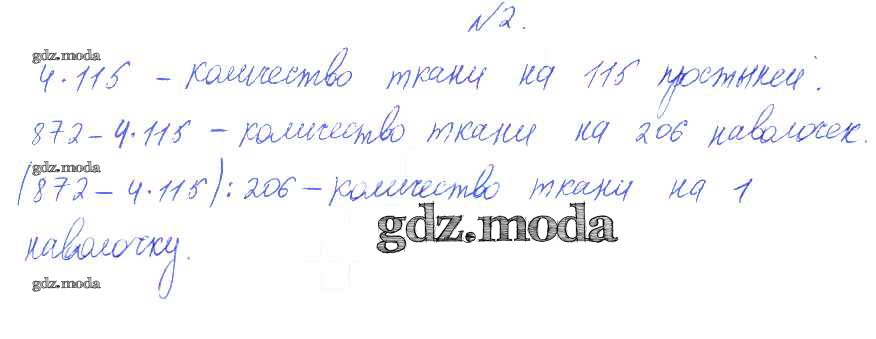 №2.
gdz.moda
4·115 – количество ткани на 115 простыней.
872 – 4·115 – количество ткани на 206 наволочек.
gdz.moda
(872 – 4·115) : 206 – количество ткани на 1
gdz.moda
наволочку.
gdz.moda